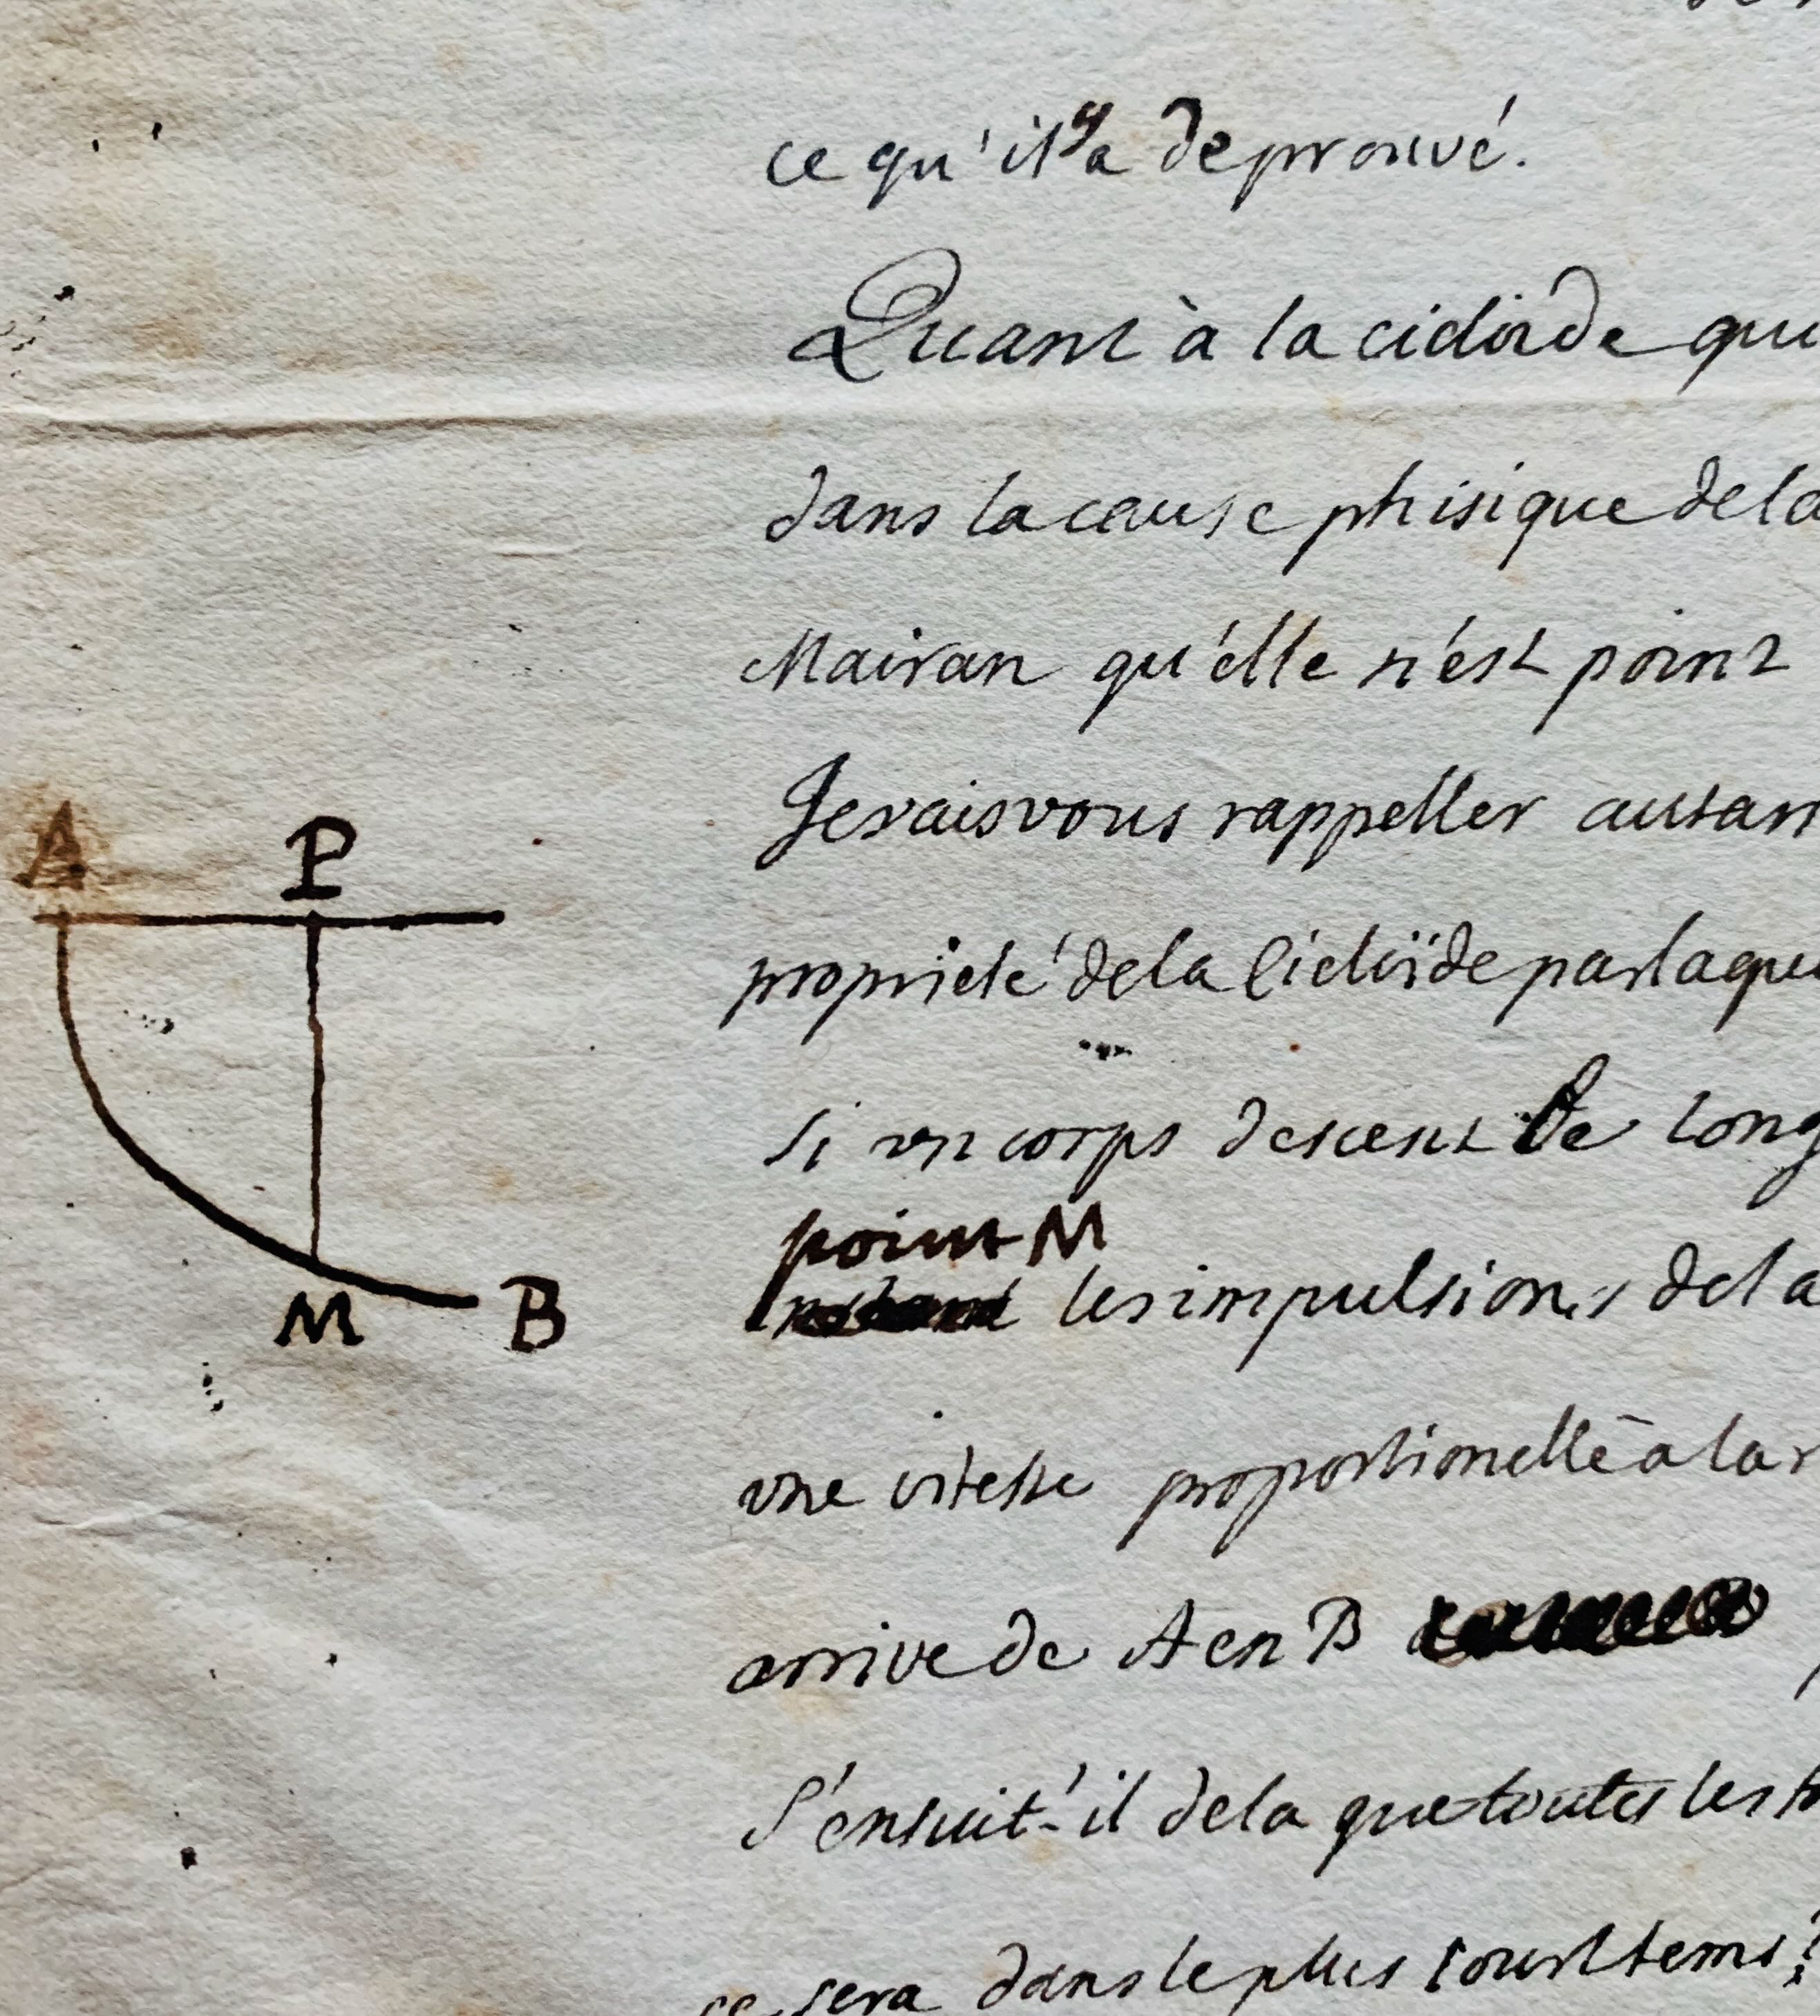 ce qu'il y a de prouvé.
Quant à la cicloide qu
dans la cause phisique de la
Mairan qu'élle n'ést point
Je vais vous rappeller autan
A
P
proprieté de la Cicloïde par laque
si un corps descent le long
point M
instant les impulsions de la
M
B
une vitesse proportionelle à la r
arrive de A en B
S'ensuit-il dela que toutes les
ce sera dans le plus court tems?